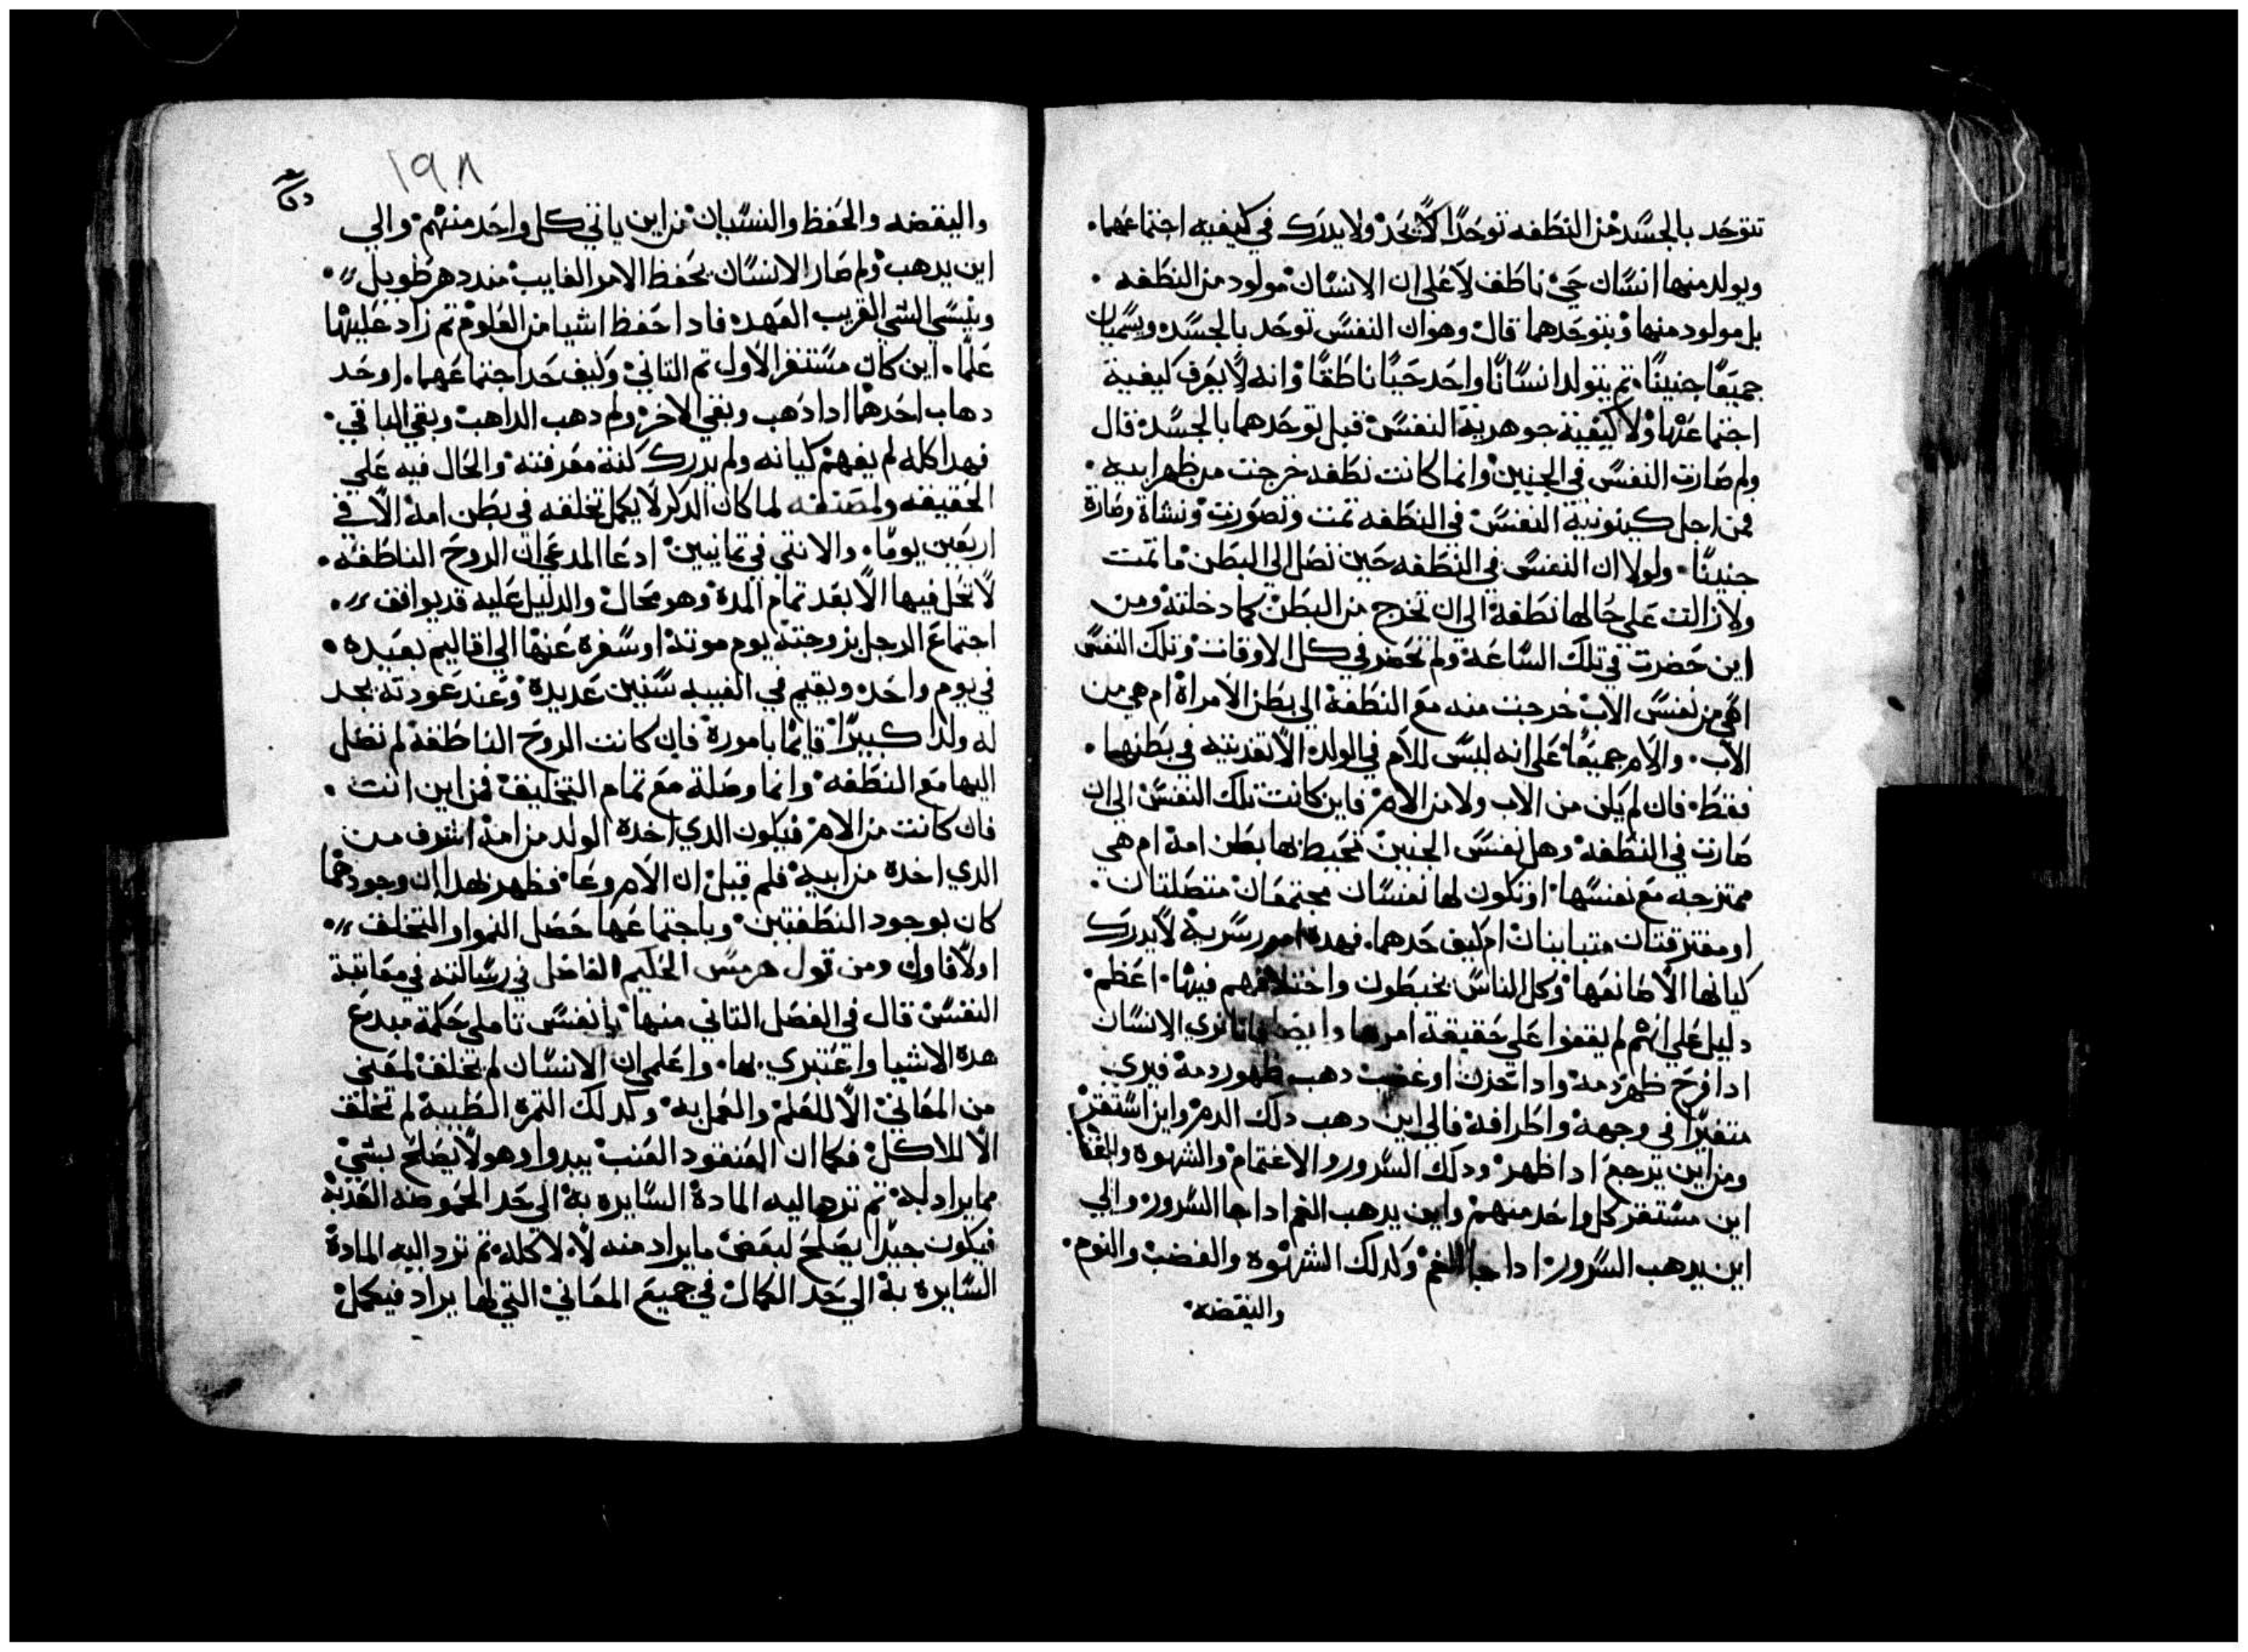 تتوحد بالجسد من النطفه توحدًا لا يحد ولا يدرك في كيفيه اجتماعهما.
ويولد منها انسان حي ناطف لا علي ان الانسان مولود من النطفه.
بل مولود منها وبتوحدهما قال وهوان النفس توحد بالجسد ويسميان
جميعًا جنينًا. تم يتولد انسانًا واحد حيًا ناطقًا وانه لا يعرف كيفية
اجتماعها ولا كيفية جوهرية النفس قبل توحدهما بالجسد قال
ولم صارت النفس في الجنين وانما كانت نطفه خرجت من ظهر ابيه.
فمن اجل كينونية النفس في النطفه تمت وتصورت ونشاة وصارة
جنينًا. ولولا ان النفس في النطفه حين تصل الي البطن ما تمت
ولازالت علي حالها نطفة الي ان تخرج من البطن كما دخلته ومن
اين حضرت في تلك الساعة ولم تحضر في كل الاوقات وتلك النفس
اهي من نفس الاب خرجت منه مع النطفة الي بطن الامراة ام هي من
الاب. والام جميعًا علي انه ليس للام في الولد الا تغديته في بطنها.
فقط. فان لم يكن من الاب ولا من الام فاين كانت تلك النفس الي ان
صارت في النطفه وهل نفس الجنين تحيط بها بطن امه ام هي
ممتزجه مع نفسها او تكون لها نفسان مجتمعان متصلتان.
او مفترقتان متباينان ام كيف حدهما. فهده امور سرية لا يدرك
كيانها الا صانعها وكل الناس يخبطون واختلافهم فيها. اعظم
دليل علي انهم لم يقفوا علي حقيقة امرها وايضا فانا نري الانسان
ادا فرح ظهر دمه وادا حزن او غضب دهب ظهور دمه فيري
متغيرًا في وجهه واطرافه فالي اين دهب دلك الدم واين استقر
ومن اين يرجع ادا ظهر ودلك السرور والاغتمام والشهوه
اين مستقر كل واحد منهم واين يدهب الغم ادا جا السرور والي
اين يدهب السرور ادا جا الغم وكدلك الشهوه والغضب والنوم.
واليقضه
١٩٨
واليقضه والحفظ والنسيان من اين ياتي كل واحد منهم. والي
اين يدهب ولم صار الانسان يحفظ الامر الغايب مند دهر طويل.
وينسي الشي القريب العهد فادا حفظ اشيا من العلوم تم زاد عليها
علمًا. اين كان مستقر الاول تم التاني وكيف حد اجتماعهما. او حد
دهاب احدهما ادا دهب وبقي الاخر ولم دهب الداهب وبقي الباقي.
فهدا كله لم يفهم كيانه ولم يدرك كنة معرفته والحال فيه علي
الحقيقه ولمصنفه لما كان الدكر لا يكمل تخلقه في بطن امه الا في
اربعين يومًا. والانتي في تمانيين ادعا المدعي ان الروح الناطقه.
لا تحل فيها الا بعد تمام المدة وهو محال والدليل عليه قد يوافق.
اجتماع الرجل بزوجته يوم موته او سفره عنها الي اقاليم بعيده.
في يوم واحد ويقيم في الغيبه سنين عديدة وعند عودته يجد
له ولدًا كبيرًا قايمًا بامورة فان كانت الروح الناطقة لم تصل
اليها مع النطفه وانما وصلة مع تمام التخليق فمن اين اتت.
فان كانت من الام فيكون الدي اخدة الولد من امه اشرف من
الدي اخدة من ابيه فلم قيل ان الام وعا فظهر بهدا ان وجودهما
كان بوجود النطفتين وباجتماعها حصل النموا والتخلق.
اولًا فاول ومن قول هرمس الحكيم الفاضل في رسالته في معاتبة
النفس قال في الفصل التاني منها يا نفس تاملي حكمة مبدع
هده الاشيا واعتبري بها. واعلمي ان الانسان لم يخلق لمعني
من المعاني الا للعلم والعمل به وكدلك التمرة الطيبة لم تخلق
الا للاكل فكما ان العنقود العنب يبدوا وهو لا يصلح بشي
مما يراد له تم تردها ليه المادة السايره به الي حد الحموضه
فيكون جيدًا يصلح لبعض ما يراد منه لا لاكله تم ترد اليه المادة
السايره به الي حد الكمال في جميع المعاني التي لها يراد فيكمل